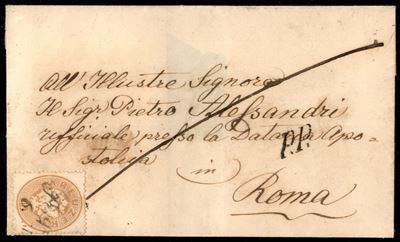 All' Illustre Signore
Il Sigr Pietro Alessandri
ufficiale presso la Dataria Apo-
stolica
in
Roma
P.P.
KREUZ